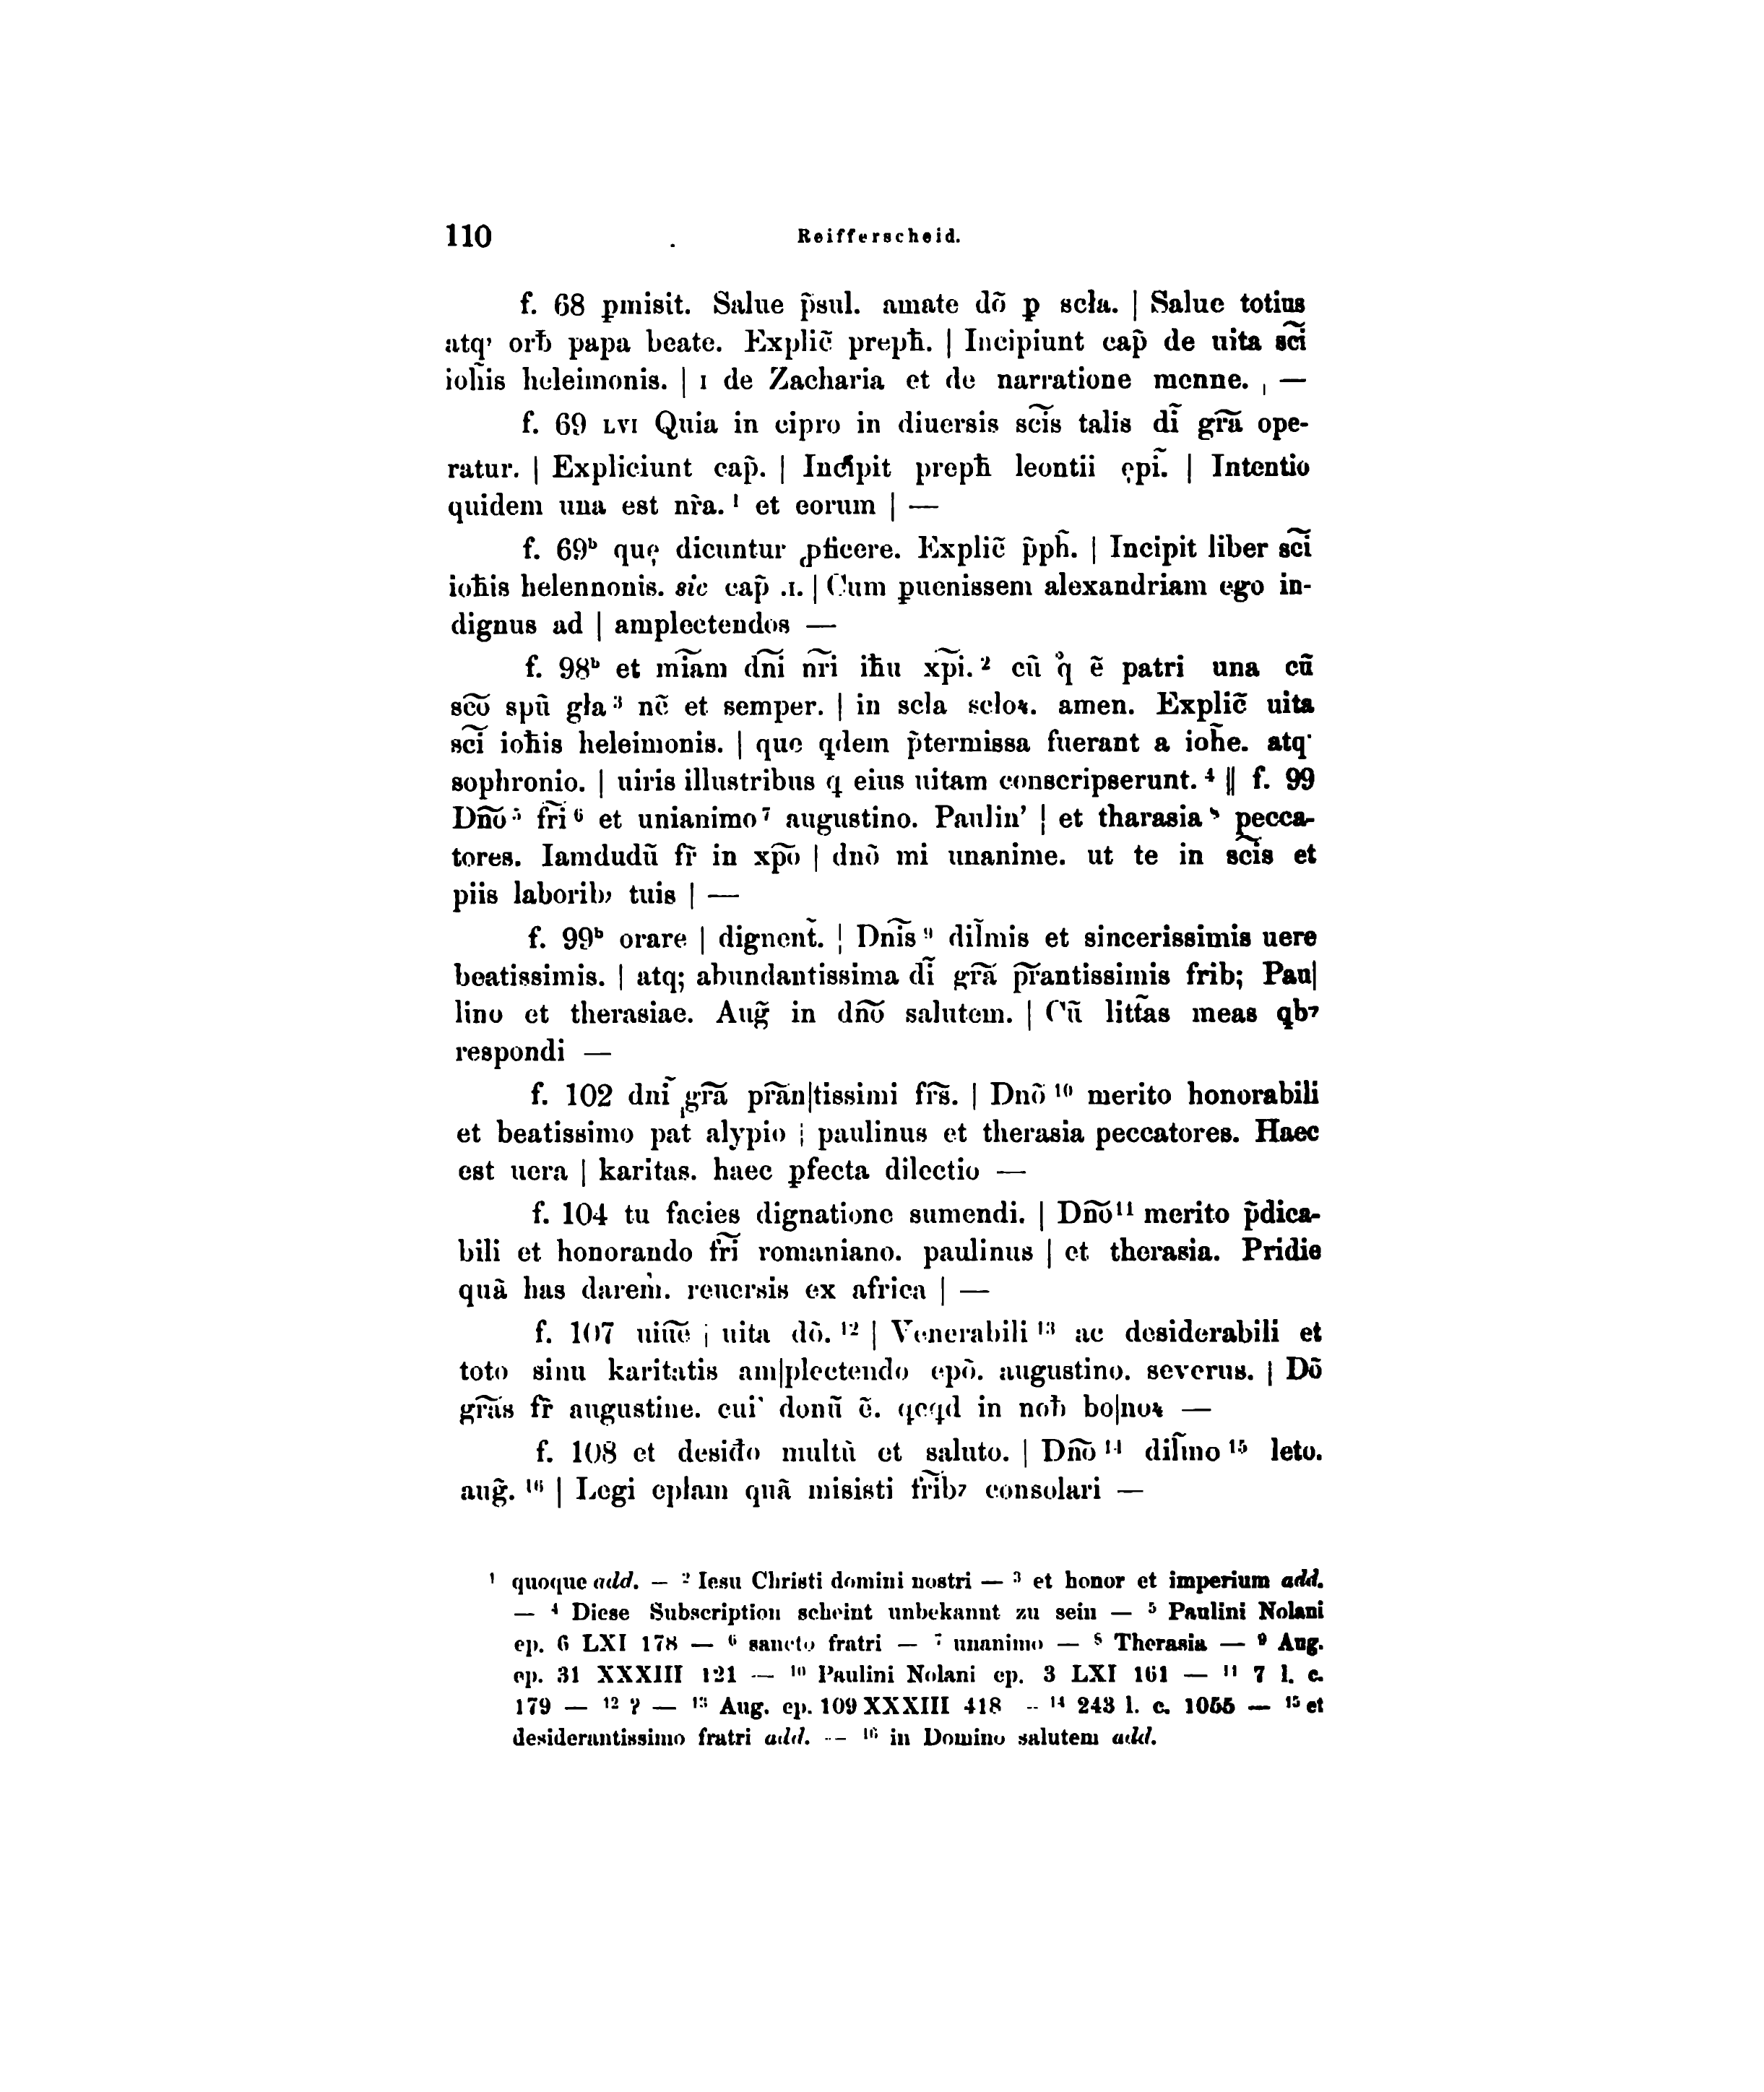 110 Reifferscheid.
f. 68 ꝑmisit. Salue p̃sul. amate dõ ꝑ scła. | Salue totius
atq’ orƀ papa beate. Explic̃ prepħ. | Incipiunt cap̃ de uita sc͠i
ioħis heleimonis. | I de Zacharia et de narratione menne. | —
f. 69 LVI Quia in cipro in diuersis sc͠is talis dĩ gr͠a ope-
ratur. | Expliciunt cap̃. | Incipit prepħ leontii ępĩ. | Intentio
quidem una est nr̃a. ¹ et eorum | —
f. 69ᵇ quę dicuntur ꝓficere. Explic̃ p̃ph̃. | Incipit liber sc͠i
ioħis helennonis. sic cap̃ .I. | Cum ꝑuenissem alexandriam ego in-
dignus ad | amplectendos —
f. 98ᵇ et mi͠am dn͠i nr͠i iħu xp͠i. ² cũ q̊ ẽ patri una cũ
sc͠o spũ gła ³ nc̃ et semper. | in scla scloꝝ. amen. Explic̃ uita
sc͠i ioħis heleimonis. | que qdem p̃termissa fuerant a ioh̃e. atq·
sophronio. | uiris illustribus q eius uitam conscripserunt. ⁴ || f. 99
Dn͠o ⁵ fr͠i ⁶ et unianimo ⁷ augustino. Paulin’ | et tharasia ⁸ pecca-
tores. Iamdudũ fr̃ in xp͠o | dnõ mi unanime. ut te in sc͠is et
piis laborib; tuis | —
f. 99ᵇ orare | dignent̃. | Dn͠is ⁹ dil̃mis et sincerissimis uere
beatissimis. | atq; abundantissima dĩ gr͠a pr͠antissimis frib; Pau|
lino et therasiae. Aug̃ in dn͠o salutem. | Cũ litt̃as meas qb⁊
respondi —
f. 102 dnĩ gr͠a pr͠an|tissimi fr͠s. | Dnõ ¹⁰ merito honorabili
et beatissimo pat̃ alypio | paulinus et therasia peccatores. Haec
est uera | karitas. haec ꝑfecta dilectio —
f. 104 tu facies dignatione sumendi. | Dn͠o ¹¹ merito p̃dica-
bili et honorando fr͠i romaniano. paulinus | et therasia. Pridie
quã has darem̃. reuersis ex africa | —
f. 107 uiu͠e | uita dõ. ¹² | Venerabili ¹³ ac desiderabili et
toto sinu karitatis am|plectendo epõ. augustino. severus. | Dõ
gr͠as fr̃ augustine. cui’ donũ ẽ. qcqd in noƀ bo|noꝝ —
f. 108 et desiđo multũ et saluto. | Dn͠o ¹⁴ dil̃mo ¹⁵ leto.
aug̃. ¹⁶ | Legi epłam quã misisti fr͠ib⁊ consolari —
¹ quoque add. — ² Iesu Christi domini nostri — ³ et honor et imperium add.
— ⁴ Diese Subscription scheint unbekannt zu sein — ⁵ Paulini Nolani
ep. 6 LXI 178 — ⁶ sancto fratri — ⁷ unanimo — ⁸ Therasia — ⁹ Aug.
ep. 31 XXXIII 121 — ¹⁰ Paulini Nolani ep. 3 LXI 161 — ¹¹ 7 l. c.
179 — ¹² ? — ¹³ Aug. ep. 109 XXXIII 418 — ¹⁴ 243 l. c. 1055 — ¹⁵ et
desiderantissimo fratri add. — ¹⁶ in Domino salutem add.